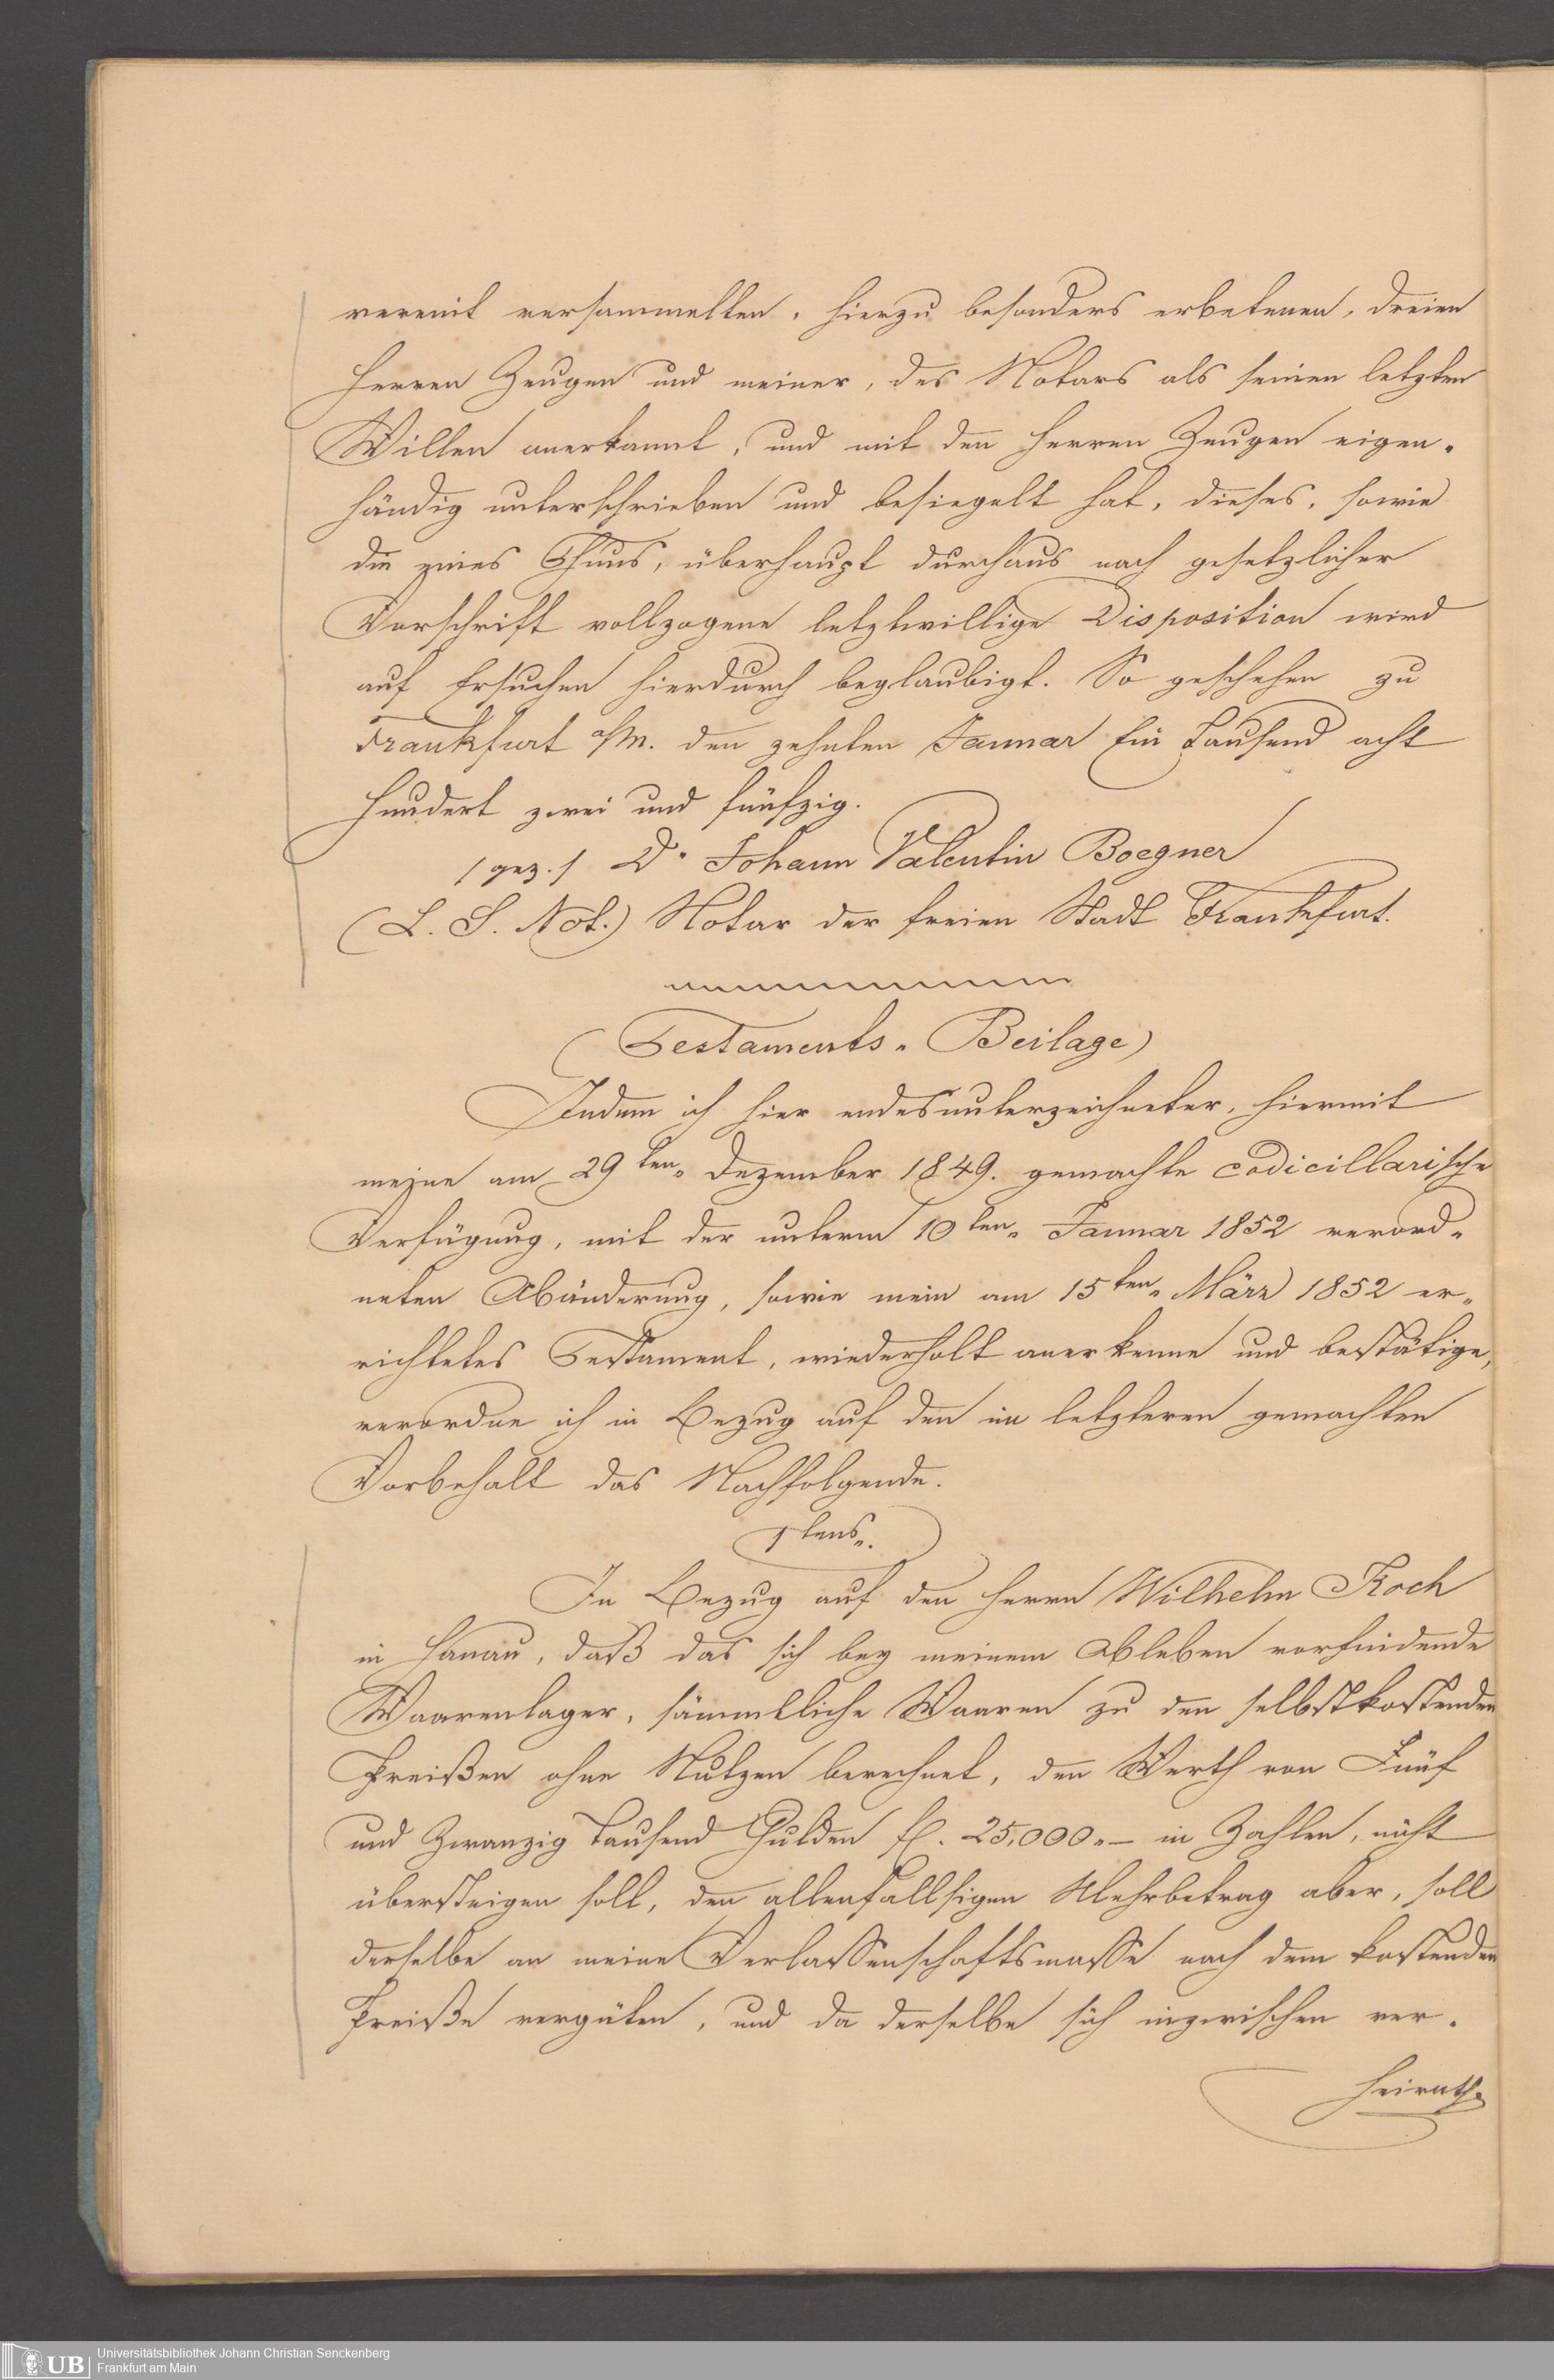 vereint versammelten, hierzu besonders erbetenen, dreien
Herren Zeugen und meiner, des Notars als seinen letzten
Willen anerkannt, und mit den Herren Zeugen eigen-
händig unterschrieben und besiegelt hat, dieses, sowie
die uno überhaupt durchaus nach gesetzlicher
Vorschrift vollzogene letztwillige Disposition wird
auf Ersuchen hierdurch beglaubigt. So geschehen zu
Frankfurt a/M. den zehnten Januar Ein Tausend acht
Hundert zwei und fünfzig.
/ gez. / Dr. Johann Valentin Boegner
(L. S. Not.) Notar der freien Stadt Frankfurt.
(Testaments-Beilage)
Indem ich hier endesunterzeichneter, hiermit
meine am 29ten Dezember 1849. gemachte codicillarische
Verfügung, mit der unterm 10ten Januar 1852 verord-
neten Abänderung, sowie mein am 15ten März 1852 er-
richtetes Testament, wiederholt anerkenne und bestätige,
verordne ich in Bezug auf den im letzteren gemachten
Vorbehalt das Nachfolgende.
1tens.
In Bezug auf den Herrn Wilhelm Koch
in Hanau, daß das sich bey meinem Ableben vorfindende
Waarenlager, sämmtliche Waaren zu den selbstkostenden
Preißen ohne Nutzen berechnet, den Werth von Fünf
und Zwanzig Tausend Gulden fl. 25,000.- in Zahlen, nicht
übersteigen soll, den allenfallsigen Mehrbetrag aber, soll
derselbe an meine Verlassenschaftsmasse nach dem kostenden
Preiße vergüten, und da derselbe sich inzwischen ver-
heirath-
UB Universitätsbibliothek Johann Christian Senckenberg
Frankfurt am Main